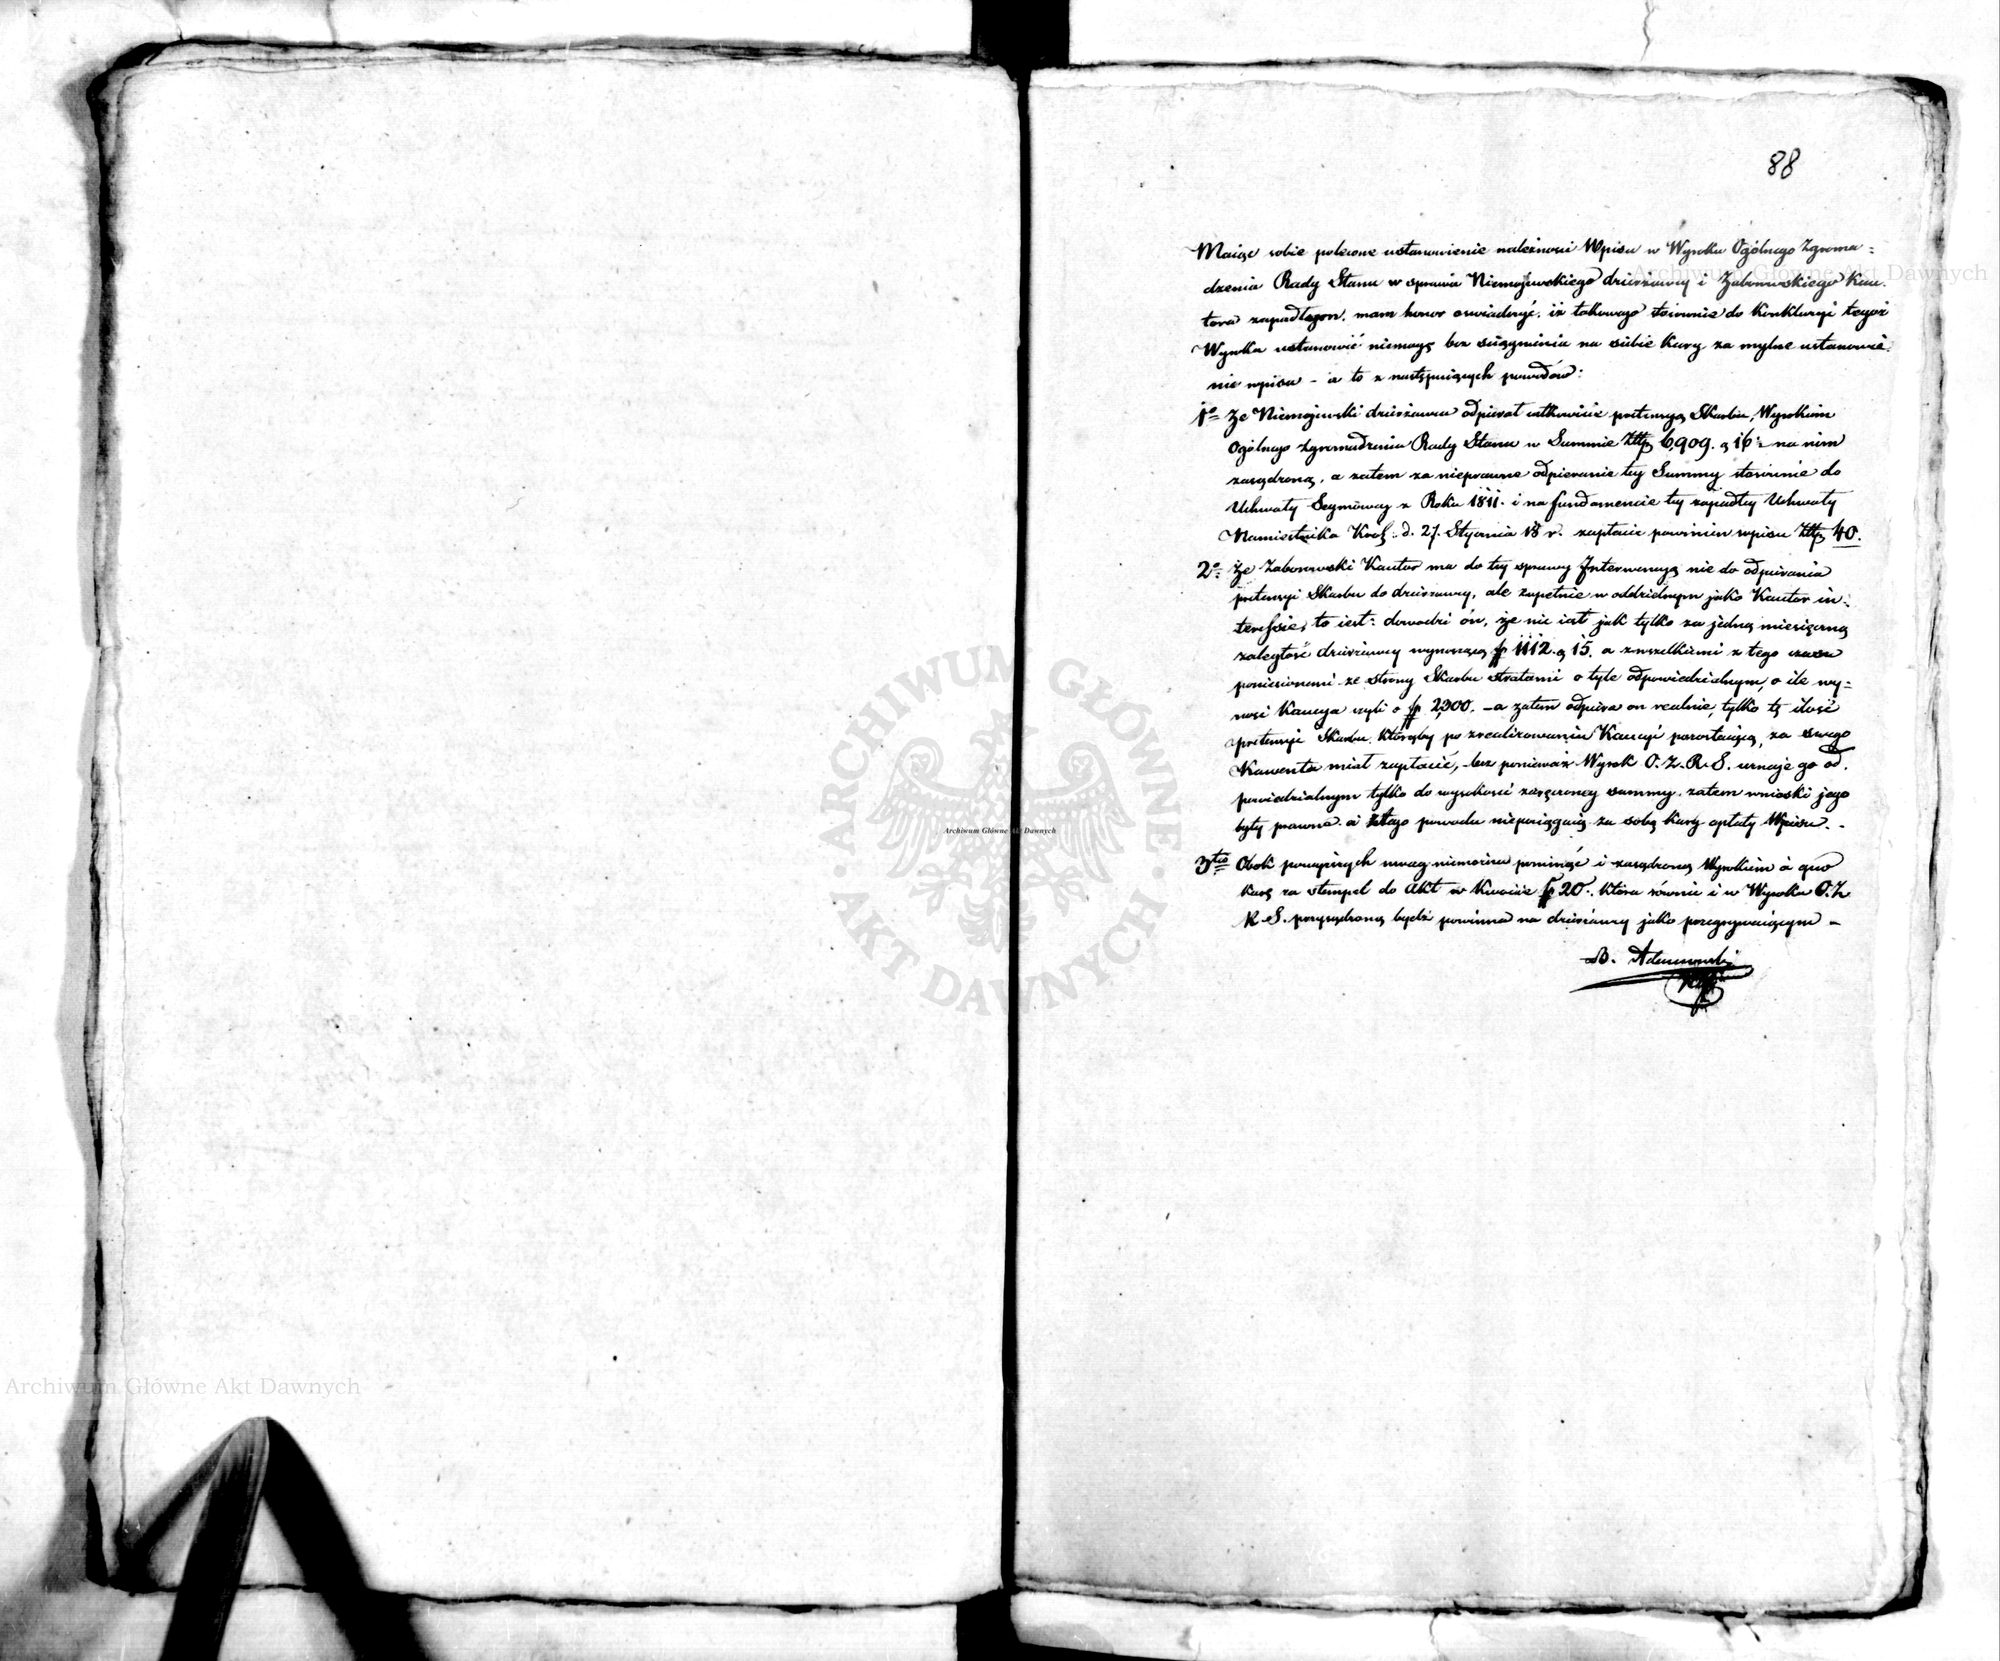 88
Maiąc sobie polecone ustanowienie należności Wpisu w Wyroku Ogólnego Zgroma-
dzenia Rady Stanu w sprawie Niemojewskiego dzierżawcy i Zaborowskiego Kau-
tora zapadłym, mam honor oświadczyć, iż takowego stosownie do Konkluzyi tegoż
Wyroku ustanowić niemogę bez ściągnienia na siebie Kary za mylne ustanowie-
nie wpisu – a to z następuiących powodów:
1o Że Niemojewski dzierżawca odpierał całkowicie pretensyą Skarbu, Wyrokiem
Ogólnego Zgromadzenia Rady Stanu w Summie Złtp 6,909. g 16 na nim
zasądzoną, a zatem za nieprawne odpieranie tey Summy stosownie do
Uchwały Seymowey z Roku 1811. i na fundamencie tey zapadłey Uchwały
Namiestnika Król: d. 27. Stycznia 18 r. zapłacić powinien wpisu Złtp 40.
2o Że Zaborowski Kautor ma do tey sprawy Interwencyą nie do odpierania
pretensyi Skarbu do dzierżawcy, ale zupełnie w oddzielnym jako Kautor in-
teressie, to iest: dowodzi ón, że nie iest jak tylko za jedną miesięczną
zaległość dzierżawcy wynoszącą fp 1112. g 15. a z wszelkiemi z tego
poniesionemi ze strony Skarbu stratami o tyle odpowiedzialnym, o ile wy-
nosi Kaucya czyli o fp 2,300. – a zatem odpiera on realnie, tylko tę ilość
pretensyi Skarbu, którąby po zrealizowaniu Kaucyi pozostaiącą, za swego
Kawenta miał zapłacić, – lecz ponieważ Wyrok O. Z. R. S. uznaje go od-
powiedzialnym tylko do wysokości zaręczoney summy, zatem wnioski jego
były prawne a z tego powodu niepociągaią za sobą kary opłaty Wpisu. –
3tio Obok powyższych uwag niemożna pominąć i zasądzoną Wyrokiem à quo
karę za stempel do Akt w kwocie fp 20. która równie i w Wyroku O. Z.
R. S. przysądzoną bydź powinna na dzierżawcy jako przegrywaiącym –
B. Adamowski
Archiwum Główne Akt Dawnych
Archiwum Główne Akt Dawnych
Archiwum Główne Akt Dawnych
ARCHIWUM GŁÓWNE · AKT DAWNYCH ·